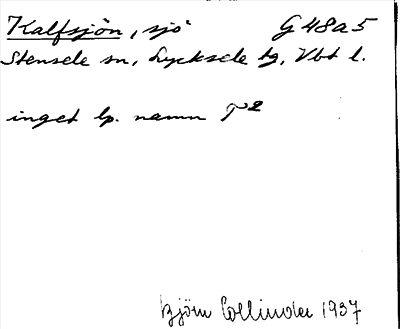 Kalfsjön, sjö G 48a5
Stensele sn, Lycksele tg, Vbt l.
inget lp. namn T²
Björn Collinder 1937